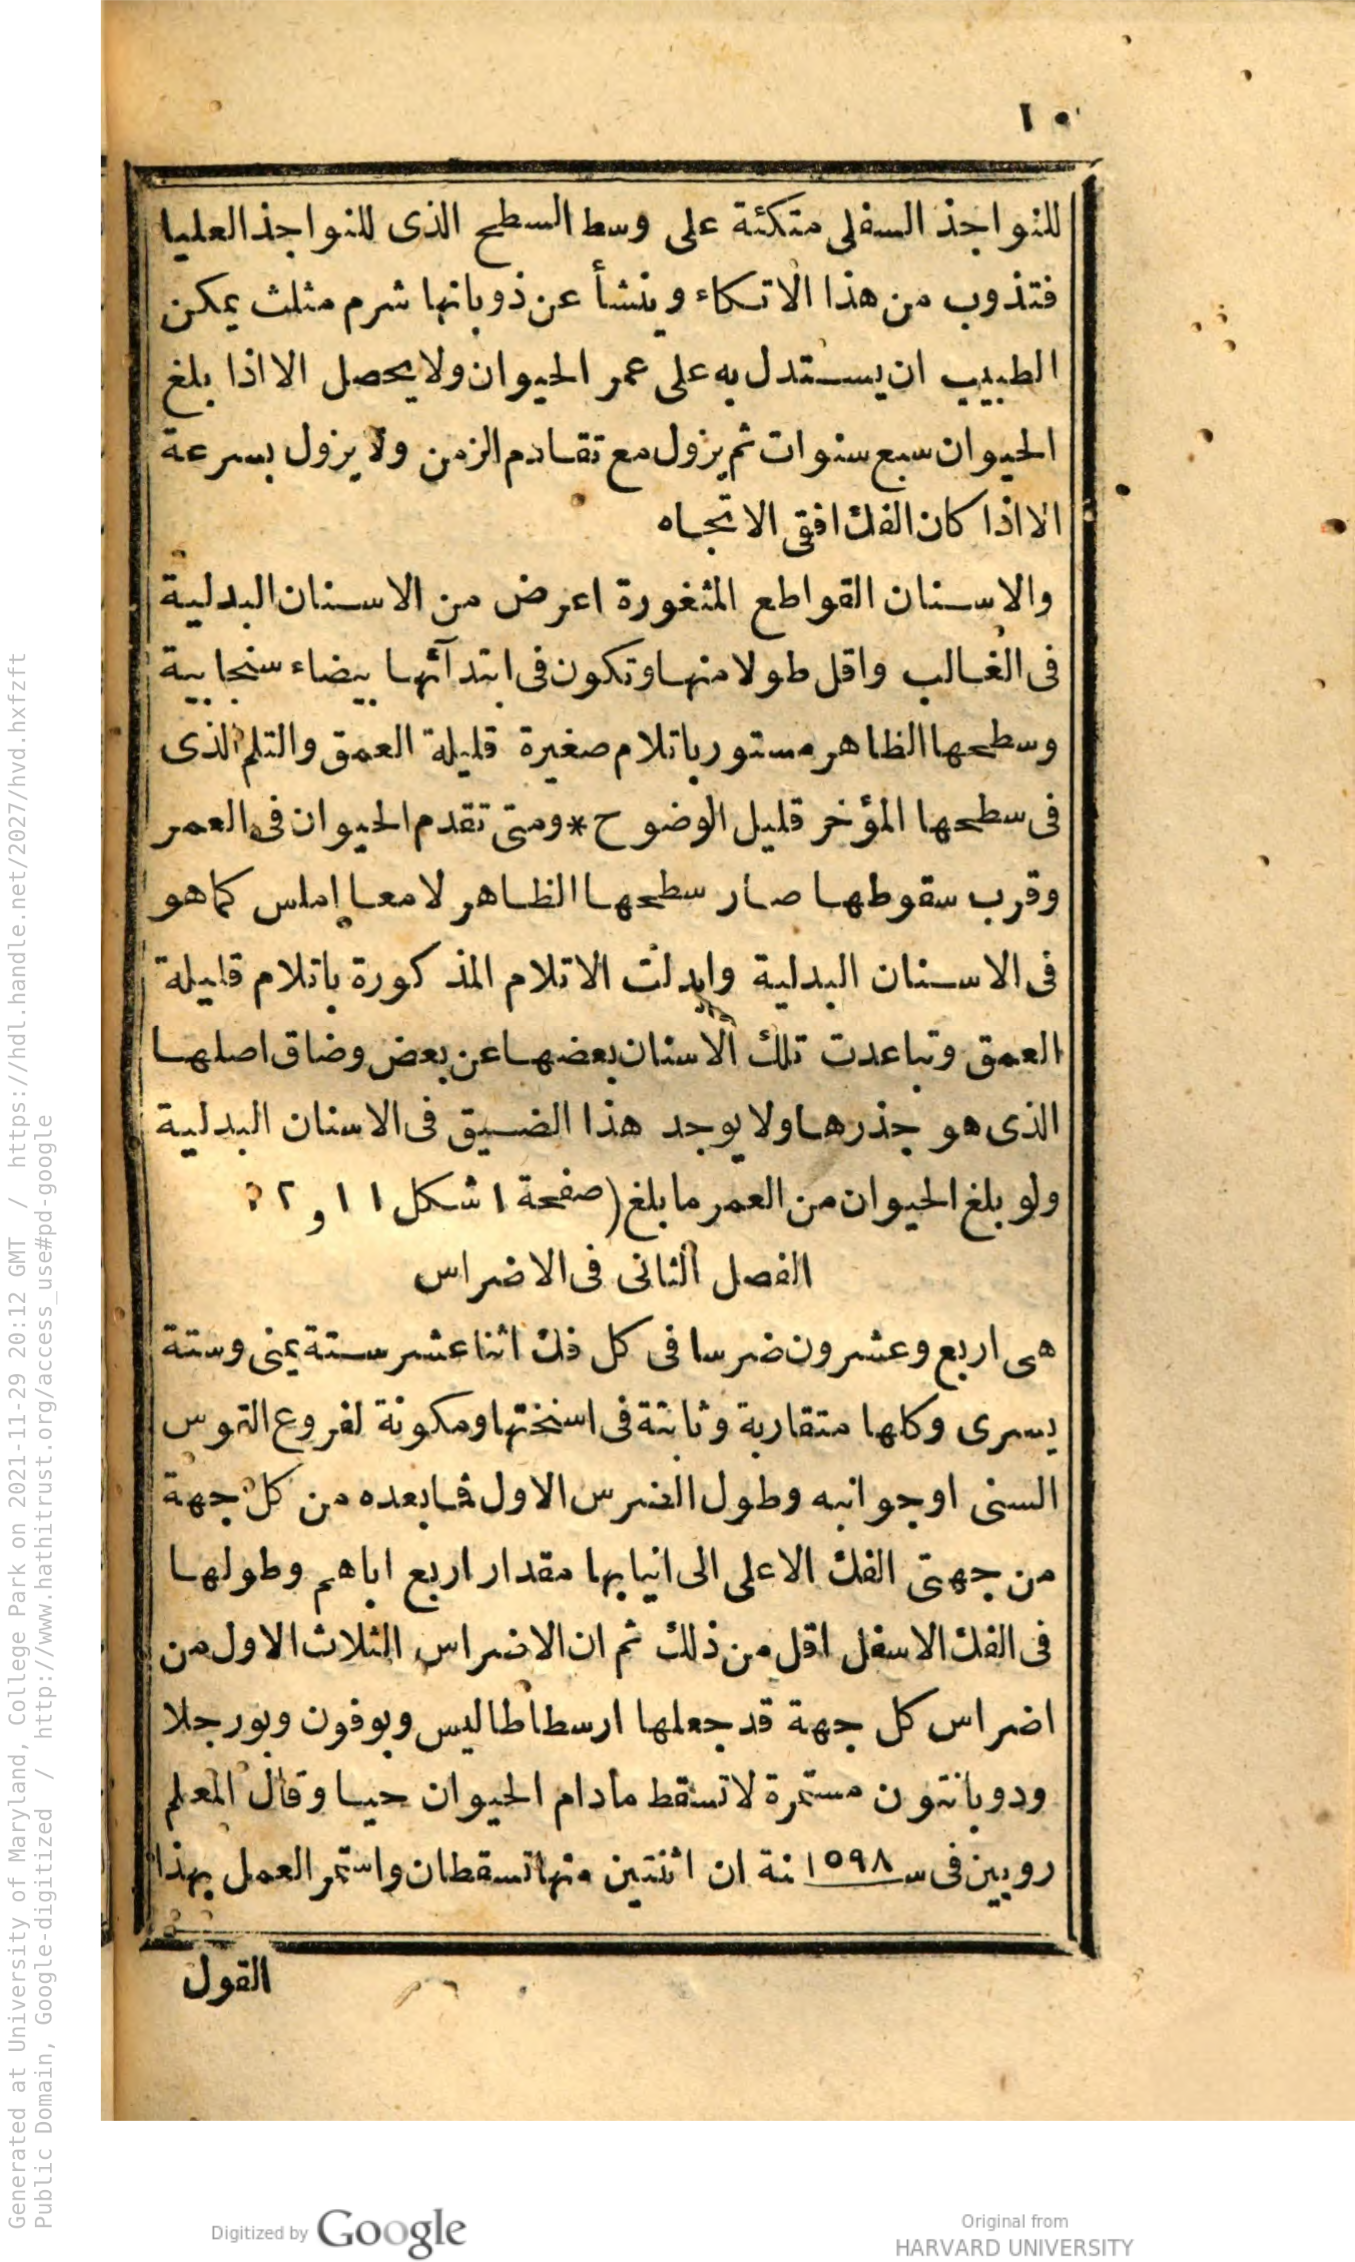 ١٠
للنواجذ السفلى متكئة على وسط السطح الذى للنواجذ العليا
فتذوب من هذا الاتكاء وينشأ عن ذوبانها شرم مثلث يمكن
الطبيب ان يستدل به على عمر الحيوان ولا يحصل الا اذا بلغ
الحيوان سبع سنوات ثم يزول مع تقادم الزمن ولا يزول بسرعة
الا اذا كان الفك افقى الاتجاه
والاسنان القواطع المثغورة اعرض من الاسنان البدلية
فى الغالب واقل طولا منها وتكون فى ابتدآئها بيضاء سنجابية
وسطحها الظاهر مستور باتلام صغيرة قليلة العمق والتلم الذى
فى سطحها المؤخر قليل الوضوح * ومتى تقدم الحيوان فى العمر
وقرب سقوطها صار سطحها الظاهر لامعا املس كما هو
فى الاسنان البدلية وابدلت الاتلام المذكورة باتلام قليلة
العمق وتباعدت تلك الاسنان بعضها عن بعض وضاق اصلها
الذى هو جذرها ولا يوجد هذا الضيق فى الاسنان البدلية
ولو بلغ الحيوان من العمر ما بلغ (صفحة ١ شكل ١١ و ٢
الفصل الثانى فى الاضراس
هى اربع وعشرون ضرسا فى كل فك اثنا عشر ستة يمنى وستة
يسرى وكلها متقاربة وثابتة فى اسنختها ومكونة لفروع القوس
السنى اوجوانبه وطول الضرس الاول فما بعده من كل جهة
من جهتى الفك الاعلى الى انيابها مقدار اربع اباهم وطولها
فى الفك الاسفل اقل من ذلك ثم ان الاضراس الثلاث الاول من
اضراس كل جهة قد جعلها ارسطاطاليس وبوفون وبورجلا
ودوبانتون مستمرة لا تسقط مادام الحيوان حيا وقال المعلم
روبين فى سنة ١٥٩٨ ان اثنتين منها تسقطان واستمر العمل بهذا
القول
Generated at University of Maryland, College Park on 2021-11-29 20:12 GMT / https://hdl.handle.net/2027/hvd.hxfzft
Public Domain, Google-digitized / http://www.hathitrust.org/access_use#pd-google
Digitized by Google
Original from
HARVARD UNIVERSITY